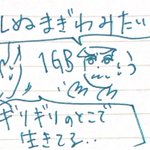 しぬまぎわみたい
1GB
ギリギリのとこで
生きてる…